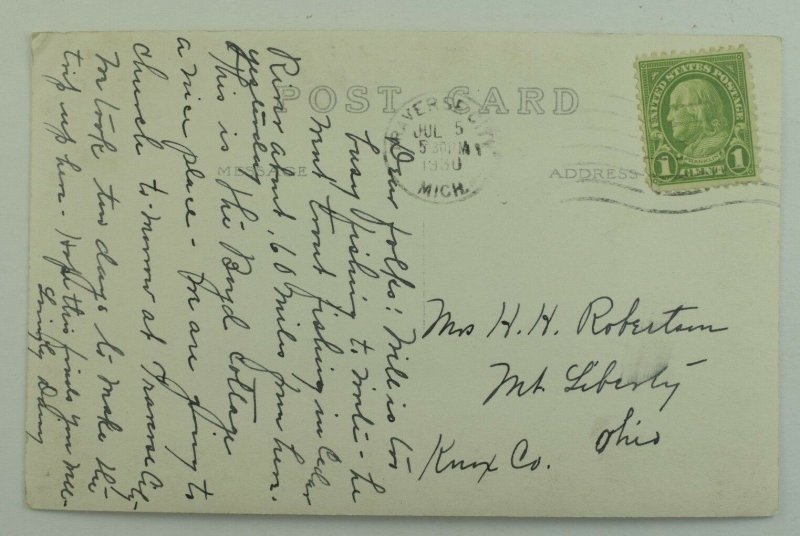 POST CARD
MESSAGE
ADDRESS
TRAVERSE CITY
JUL 5
5 30 PM
1930
MICH.
UNITED STATES POSTAGE
FRANKLIN
1 CENT 1
Dear folks: Will is too
busy fishing to write - he
went trout fishing in Cedar
River about 60 miles from here.
yesterday
This is the Boyd Cottage
a nice place - We are going to
church to-morrow at Traverse City
We took two days to make the
trip up here - Hope this finds you well
Lovingly
Mrs H. H. Robertson
Mt. Liberty
Ohio
Knox Co.